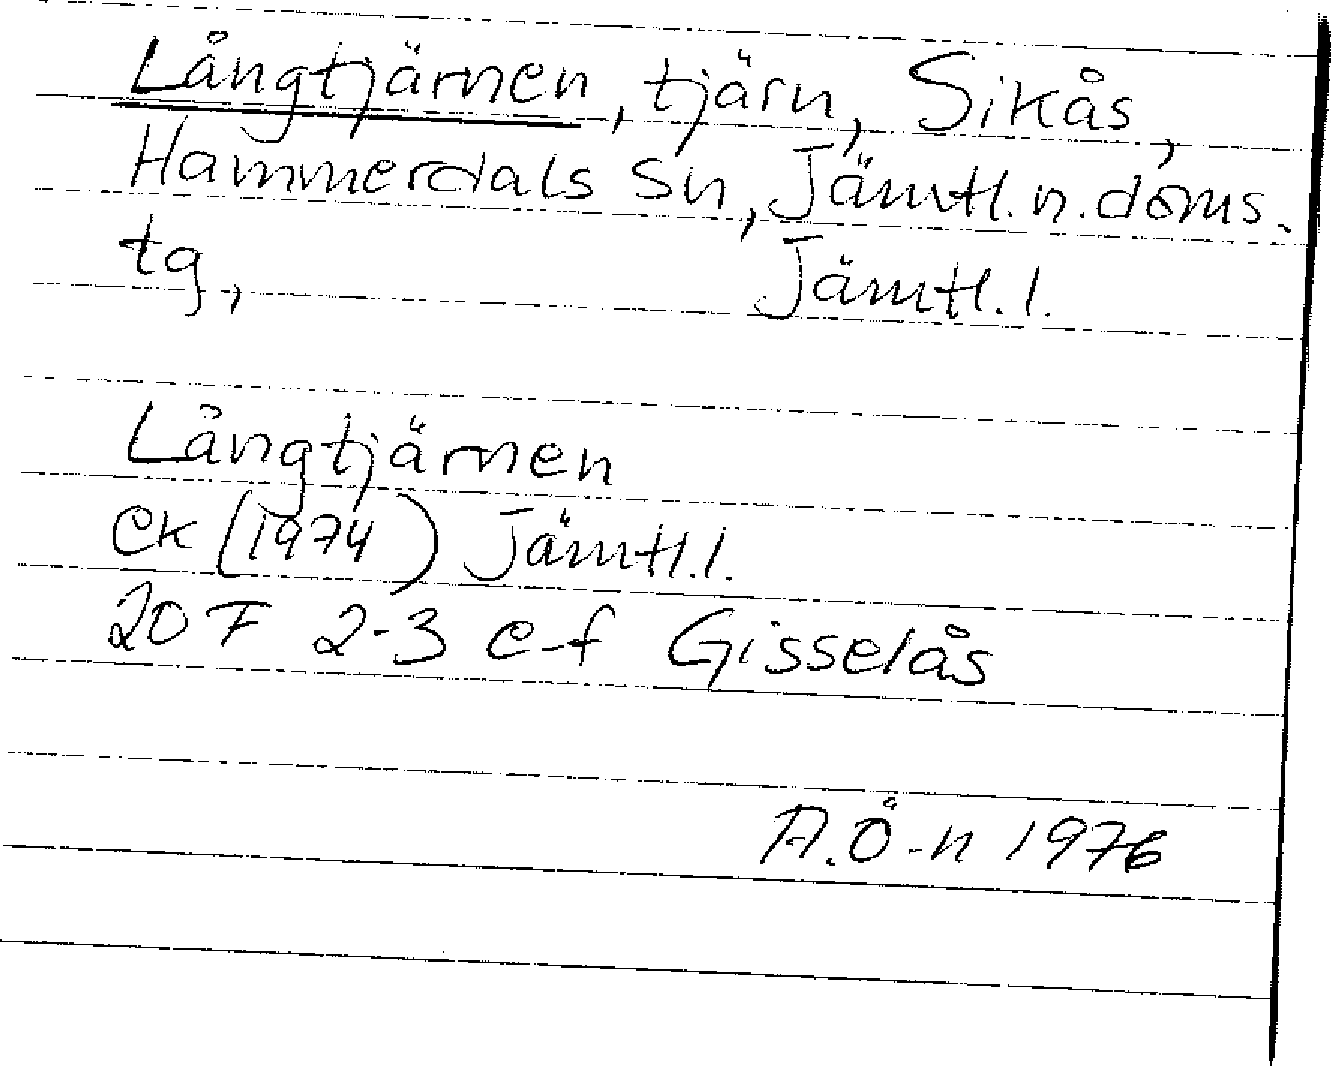 Långtjärnen, tjärn, Sikås,
Hammerdals sn, Jämtl. n. doms.
tg, Jämtl. l.
Långtjärnen
ek (1974) Jämtl. l.
20 F 2-3 e-f Gisselås
A. Ö-n 1976